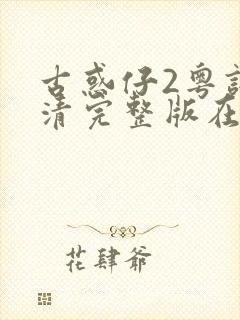 古惑仔2粤
清完整版在
花肆爷